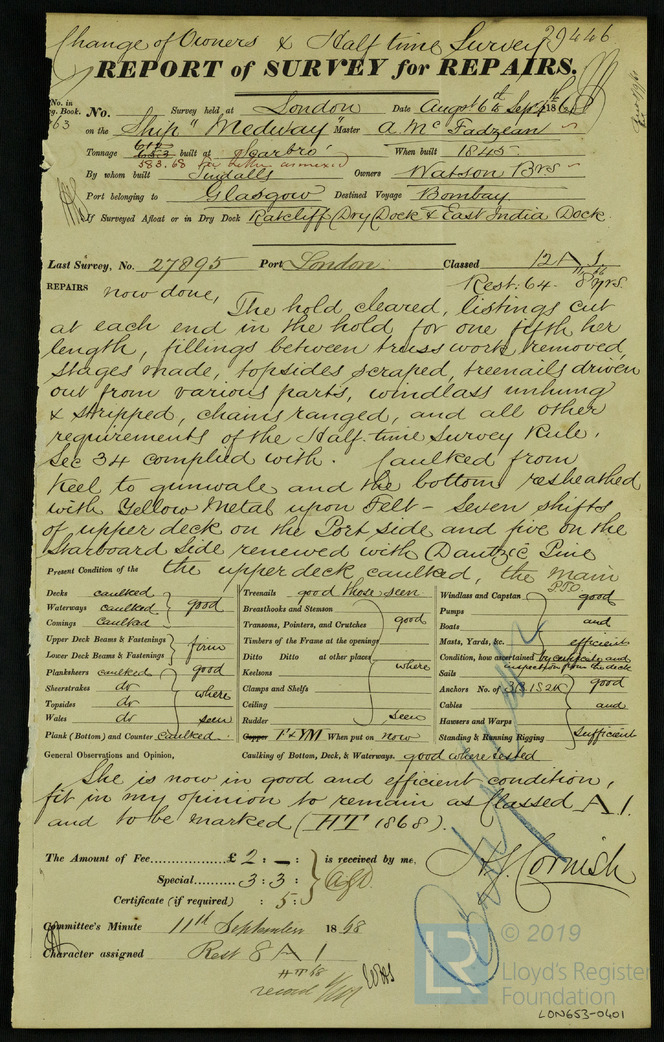 Change of Owners & Half time Survey 29446
REPORT of SURVEY for REPAIRS.
No. in Reg. Book. No. Survey held at London Date Augst 6th Sept 186
63 on the Ship "Medway" Master A. Mc Fadzean
Tonnage 612 built at Scarbro' When built 1845
583.68
By whom built Tindalls Owners Watson Brs
Port belonging to Glasgow Destined Voyage Bombay
If Surveyed Afloat or in Dry Dock Ratcliff Dry Dock & East India Dock
Last Survey, No. 27895 Port London Classed 12 A 1
Rest. 64. 8 yrs.
REPAIRS now done, The hold cleared, listings cut
at each end in the hold for one fifth her
length, fillings between truss work removed,
stages made, topsides scraped, treenails driven
out from various parts, windlass unhung
& stripped, chains ranged, and all other
requirements of the Half-time Survey Rule,
Sec 34 complied with. Caulked from
Keel to gunwale and the bottom resheathed
with Yellow Metal upon Felt - Seven shifts
of upper deck on the Port side and five on the
Starboard Side renewed with Dantzic Pine
the upper deck caulked, the main
PTO
Present Condition of the
Decks caulked
Waterways caulked good
Comings caulked
Upper Deck Beams & Fastenings
Lower Deck Beams & Fastenings firm
Planksheers caulked good
Sheerstrakes do where
Topsides do
Wales do seen
Plank (Bottom) and Counter caulked
Treenails good those seen
Breasthooks and Stemson
Transoms, Pointers, and Crutches good
Timbers of the Frame at the openings
Ditto Ditto at other places where
Keelsons
Clamps and Shelfs
Ceiling
Rudder seen
Copper F & YM When put on now
Windlass and Capstan good
Pumps
Boats and
Masts, Yards, &c. efficient
Condition, how ascertained by
inspection from the deck
Sails
Anchors No. of 3B 1S 2K good
Cables and
Hawsers and Warps
Standing & Running Rigging sufficient
General Observations and Opinion, Caulking of Bottom, Deck, & Waterways. good where tested
She is now in good and efficient condition,
fit in my opinion to remain as Classed A 1.
and to be marked (HT 1868).
The Amount of Fee £ 2 : — : is received by me,
Special 3 : 3 :
Certificate (if required) : 5 :
Cornish
Committee's Minute 11th September 1868
Character assigned Rest 8 A 1
HT 68
record
© 2019
LR
Lloyd's Register
Foundation
LON653-0401